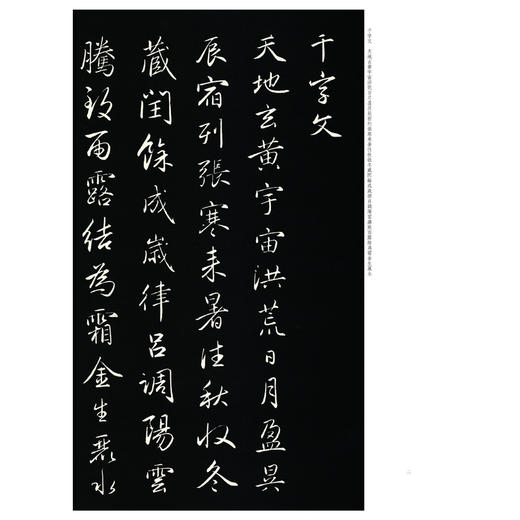 千字文　天地玄黃宇宙洪荒日月盈昃辰宿列張寒來暑往秋收冬藏閏餘成歲律呂調陽雲騰致雨露結爲霜金生麗水
千字文
天地玄黃宇宙洪荒日月盈昃
辰宿列張寒来暑往秋收冬
藏閏餘成歲律呂調陽雲
騰致雨露結為霜金生麗水